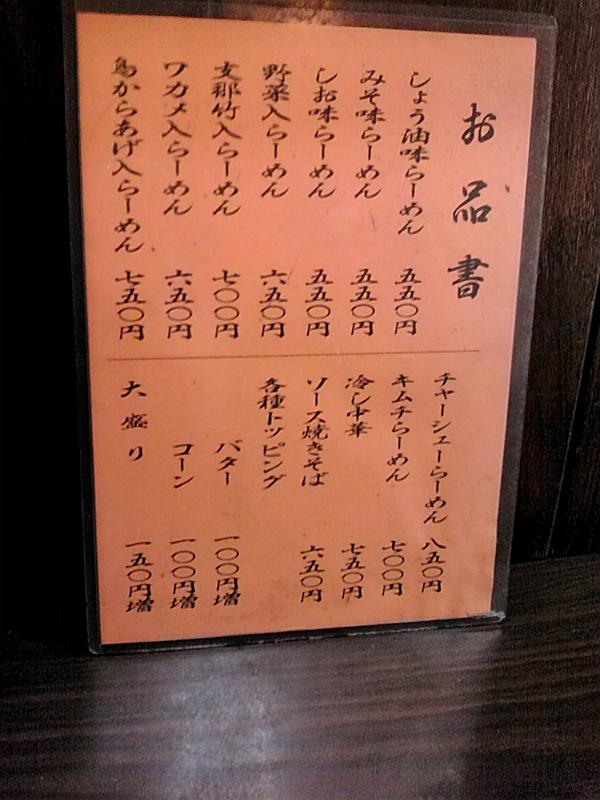 お品書
しょう油味らーめん 五五〇円
みそ味らーめん 五五〇円
しお味らーめん 五五〇円
野菜入らーめん 六五〇円
支那竹入らーめん 七〇〇円
ワカメ入らーめん 六五〇円
鳥からあげ入らーめん 七五〇円
チャーシューらーめん 八五〇円
キムチらーめん 七〇〇円
冷し中華 七五〇円
ソース焼きそば 六五〇円
各種トッピング
バター 一〇〇円増
コーン 一〇〇円増
大盛り 一五〇円増